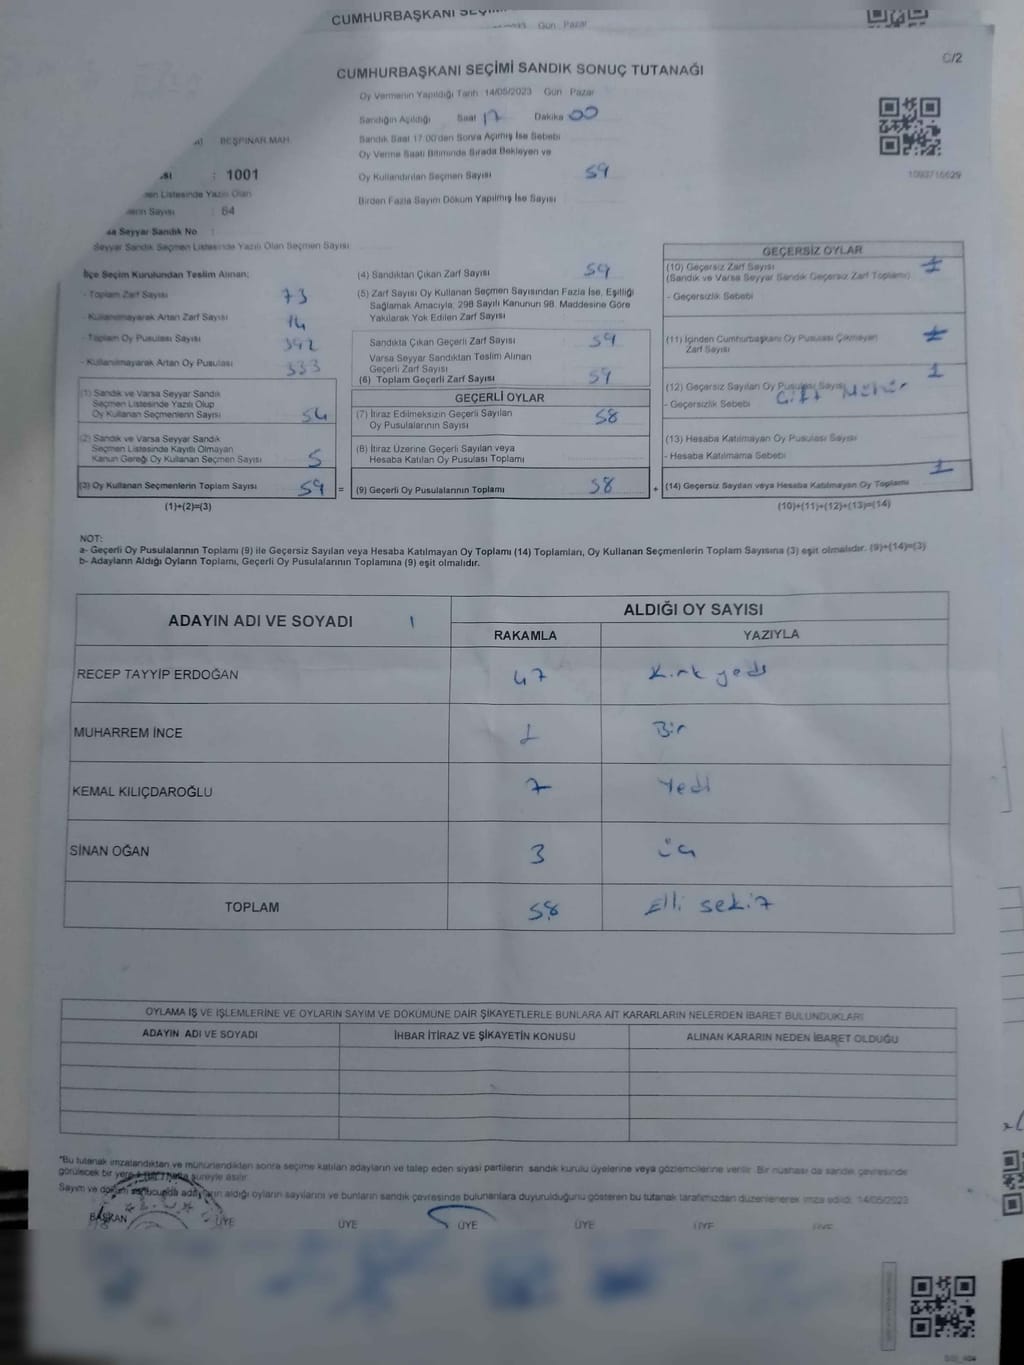 CUMHURBAŞKANI
Gün Pazar
C/2
CUMHURBAŞKANI SEÇİMİ SANDIK SONUÇ TUTANAĞI
Oy Vermenin Yapıldığı Tarih 14/05/2023 Gün Pazar
Sandığın Açıldığı Saat 17 Dakika 00
Sandık Saat 17:00'den Sonra Açılmış İse Sebebi
Oy Verme Saati Bitiminde Sırada Bekleyen ve
Oy Kullandırılan Seçmen Sayısı 59
Birden Fazla Sayım Döküm Yapılmış İse Sayısı
1093716629
BEŞPINAR MAH.
: 1001
men Listesinde Yazılı Olan
Sayısı : 64
sa Seyyar Sandık No :
Seyyar Sandık Seçmen Listesinde Yazılı Olan Seçmen Sayısı
İlçe Seçim Kurulundan Teslim Alınan;
- Toplam Zarf Sayısı 73
- Kullanılmayarak Artan Zarf Sayısı 14
- Toplam Oy Pusulası Sayısı 392
- Kullanılmayarak Artan Oy Pusulası 333
(1) Sandık ve Varsa Seyyar Sandık
Seçmen Listesinde Yazılı Olup
Oy Kullanan Seçmenlerin Sayısı 54
(2) Sandık ve Varsa Seyyar Sandık
Seçmen Listesinde Kayıtlı Olmayan
Kanun Gereği Oy Kullanan Seçmen Sayısı 5
(3) Oy Kullanan Seçmenlerin Toplam Sayısı 59 =
(1)+(2)=(3)
(4) Sandıktan Çıkan Zarf Sayısı 59
(5) Zarf Sayısı Oy Kullanan Seçmen Sayısından Fazla İse, Eşitliği
Sağlamak Amacıyla, 298 Sayılı Kanunun 98. Maddesine Göre
Yakılarak Yok Edilen Zarf Sayısı
Sandıkta Çıkan Geçerli Zarf Sayısı 59
Varsa Seyyar Sandıktan Teslim Alınan
Geçerli Zarf Sayısı
(6) Toplam Geçerli Zarf Sayısı 59
GEÇERLİ OYLAR
(7) İtiraz Edilmeksizin Geçerli Sayılan
Oy Pusulalarının Sayısı 58
(8) İtiraz Üzerine Geçerli Sayılan veya
Hesaba Katılan Oy Pusulası Toplamı
(9) Geçerli Oy Pusulalarının Toplamı 58 +
GEÇERSİZ OYLAR
(10) Geçersiz Zarf Sayısı
(Sandık ve Varsa Seyyar Sandık Geçersiz Zarf Toplamı)
- Geçersizlik Sebebi
(11) İçinden Cumhurbaşkanı Oy Pusulası Çıkmayan
Zarf Sayısı
(12) Geçersiz Sayılan Oy Pusulası Sayısı 1
- Geçersizlik Sebebi Çift Mühür
(13) Hesaba Katılmayan Oy Pusulası Sayısı
- Hesaba Katılmama Sebebi
(14) Geçersiz Sayılan veya Hesaba Katılmayan Oy Toplamı 1
(10)+(11)+(12)+(13)=(14)
NOT:
a- Geçerli Oy Pusulalarının Toplamı (9) ile Geçersiz Sayılan veya Hesaba Katılmayan Oy Toplamı (14) Toplamları, Oy Kullanan Seçmenlerin Toplam Sayısına (3) eşit olmalıdır. (9)+(14)=(3)
b- Adayların Aldığı Oyların Toplamı, Geçerli Oy Pusulalarının Toplamına (9) eşit olmalıdır.
ADAYIN ADI VE SOYADI ALDIĞI OY SAYISI
RAKAMLA YAZIYLA
RECEP TAYYİP ERDOĞAN 47 Kırk yedi
MUHARREM İNCE 1 Bir
KEMAL KILIÇDAROĞLU 7 Yedi
SİNAN OĞAN 3 üç
TOPLAM 58 Elli sekiz
OYLAMA İŞ VE İŞLEMLERİNE VE OYLARIN SAYIM VE DÖKÜMÜNE DAİR ŞİKAYETLERLE BUNLARA AİT KARARLARIN NELERDEN İBARET BULUNDUKLARI
ADAYIN ADI VE SOYADI İHBAR İTİRAZ VE ŞİKAYETİN KONUSU ALINAN KARARIN NEDEN İBARET OLDUĞU
*Bu tutanak imzalandıktan ve mühürlendikten sonra seçime katılan adayların ve talep eden siyasi partilerin sandık kurulu üyelerine veya gözlemcilerine verilir. Bir nüshası da sandık çevresinde
görülecek bir yere süreyle asılır.
Sayım ve döküm sonucunda adayların aldığı oyların sayılarını ve bunların sandık çevresinde bulunanlara duyurulduğunu gösteren bu tutanak tarafımızdan düzenlenerek imza edildi. 14/05/2023
BAŞKAN ÜYE ÜYE ÜYE ÜYE ÜYE ÜYE